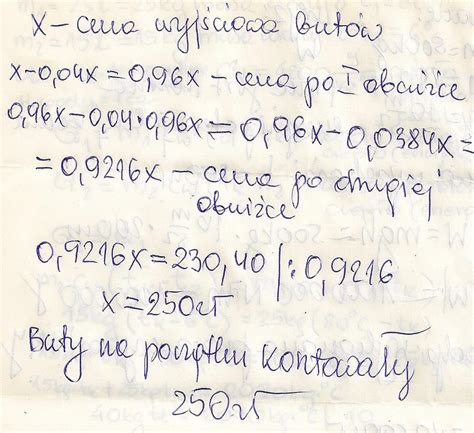 x – cena wyjściowa butów
x-0,04x = 0,96x – cena po I obniżce
0,96x-0,04·0,96x = 0,96x-0,0384x =
= 0,9216x – cena po drugiej
obniżce
0,9216x = 230,40 |:0,9216
x = 250zł
Buty na początku kosztowały
250zł